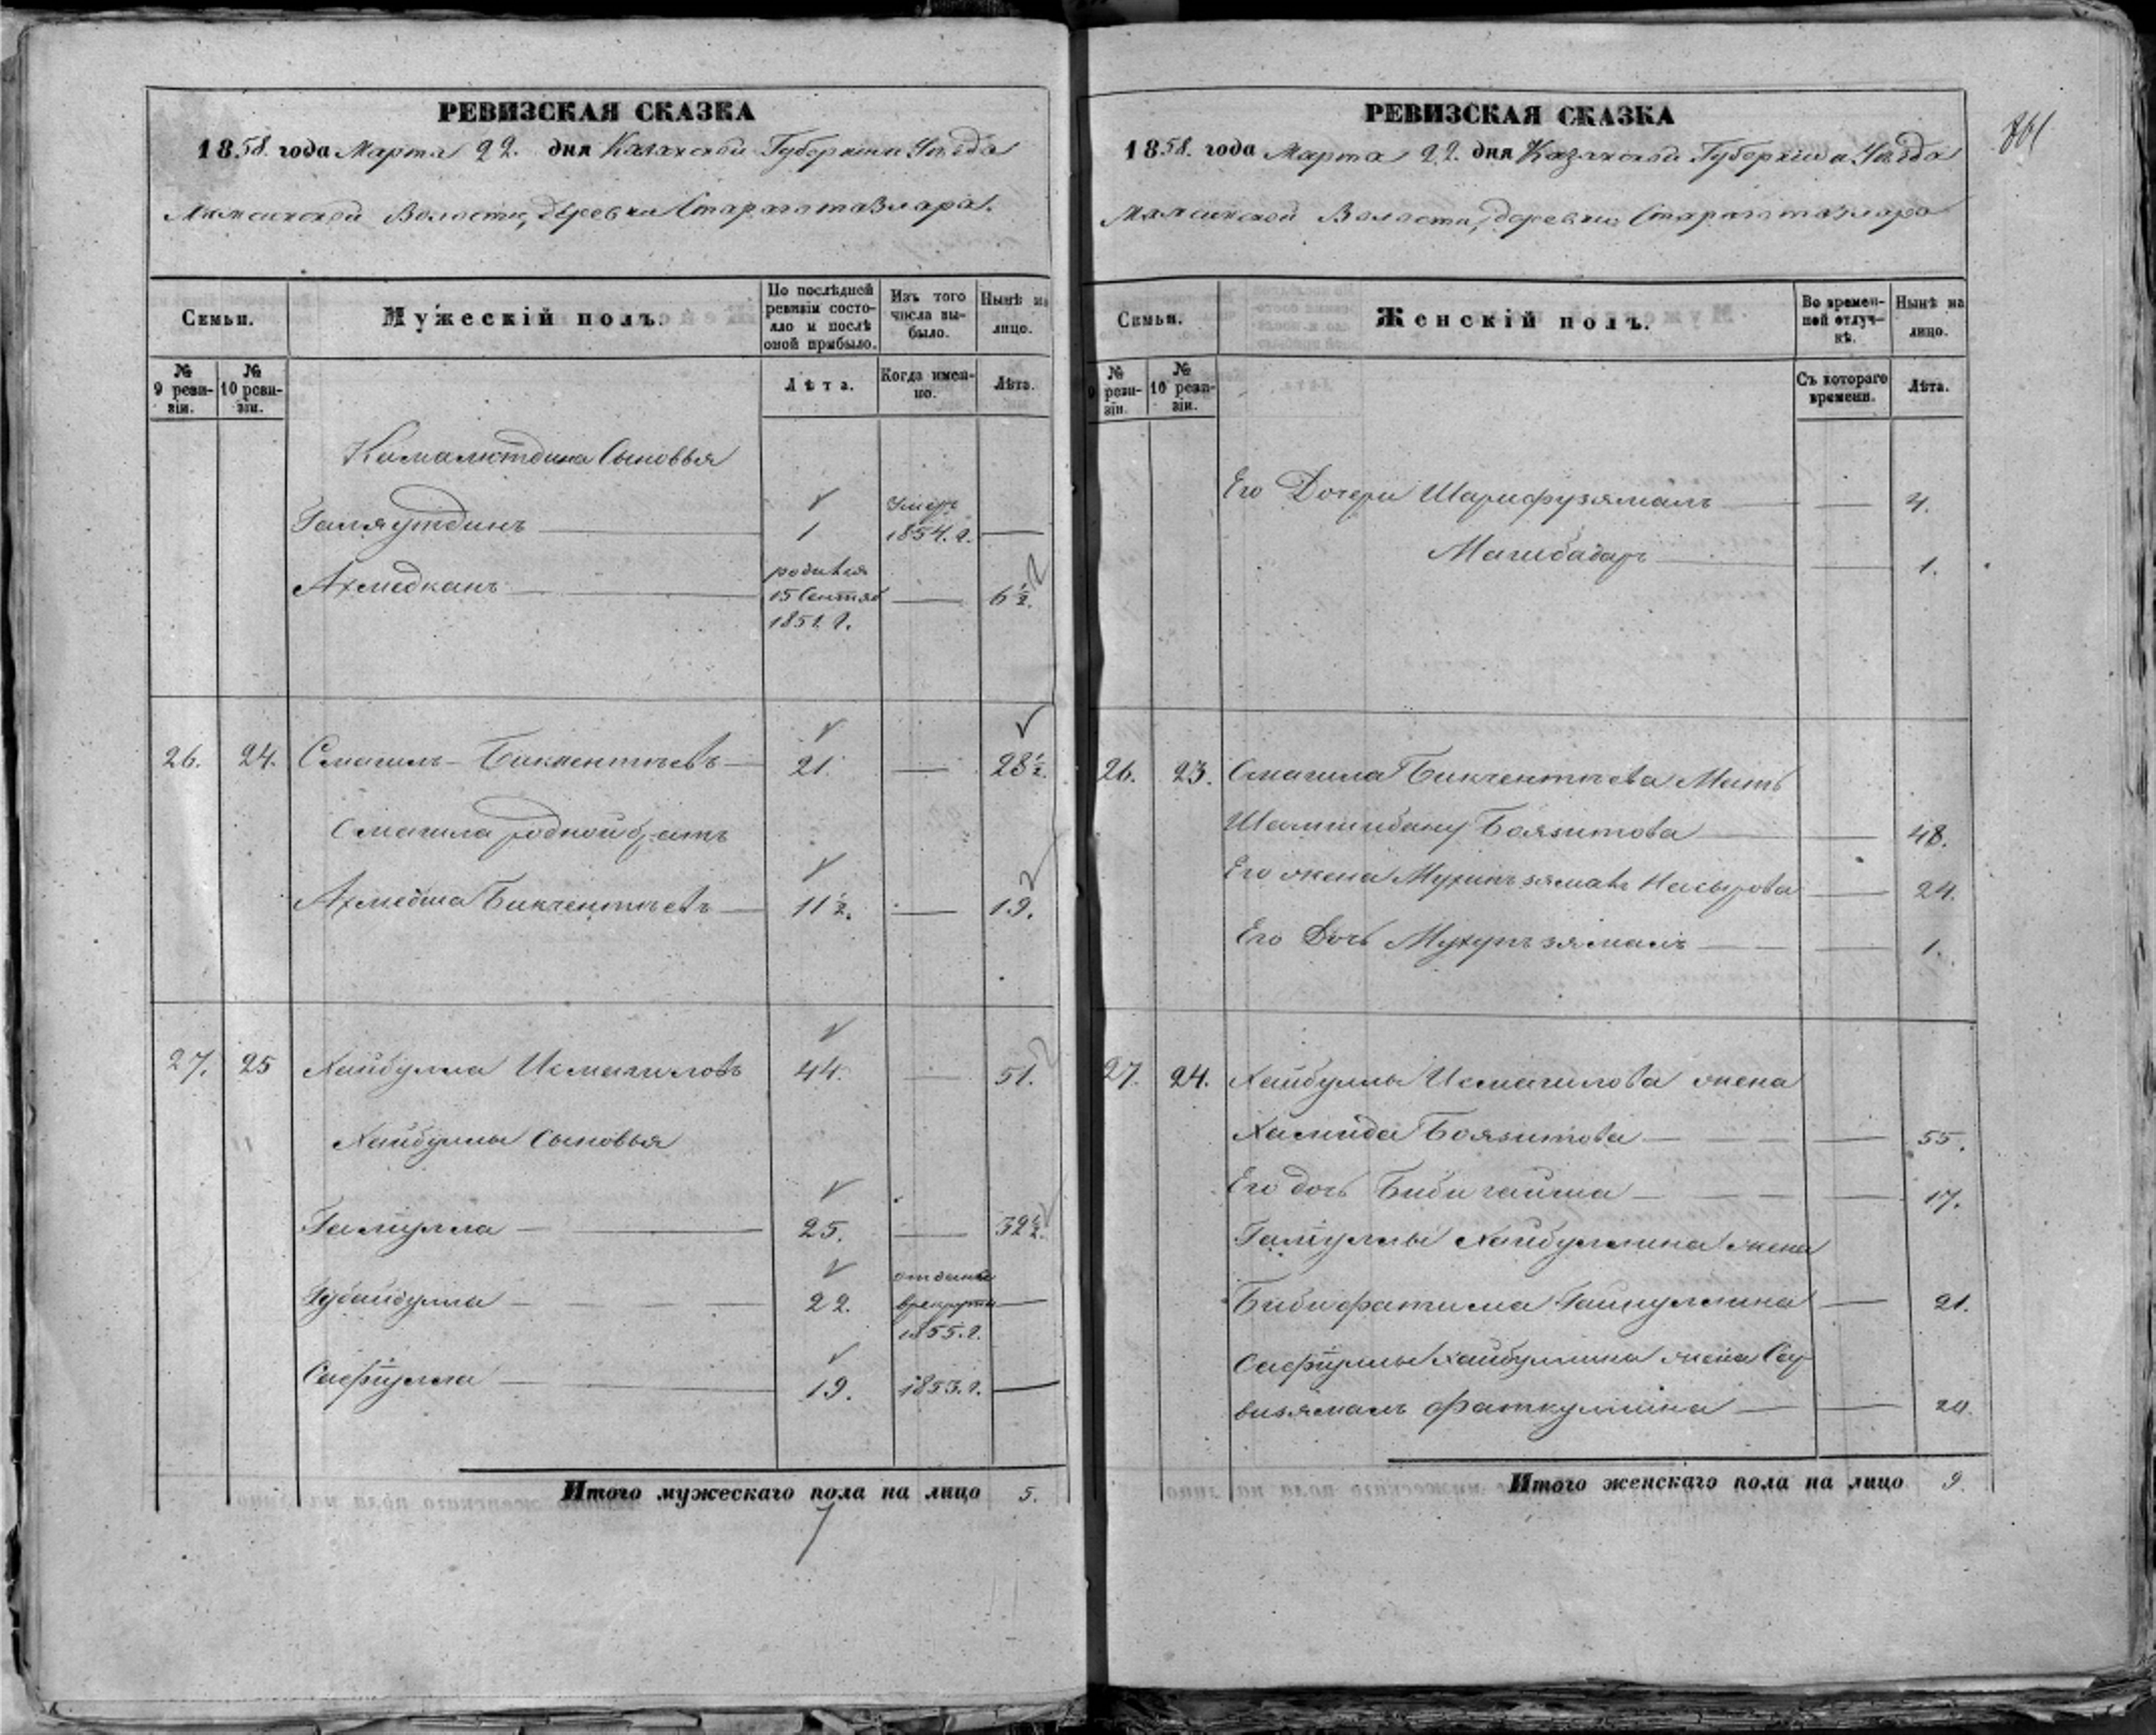 РЕВИЗСКАЯ СКАЗКА
1858. года Марта 22. дня Казанской Губернии Уезда
Мамсинской Волости, деревни Старого тазлара.
Семьи.
Мужескій полъ.
По послѣдней ревизіи состояло и послѣ оной прибыло.
Изъ того числа выбыло.
Нынѣ на лицо.
№ 9 ревизіи.
№ 10 ревизіи.
Лѣта.
Когда именно.
Лѣта.
Камалютдина Сыновья
Галяутдинъ 1 умеръ 1854. г.
Ахмедканъ родился 15 Сентяб 1851. г. 6 ½.
26. 24. Смагилъ Бикчентьевъ 21. 28 ½.
Смагила родной братъ
Ахмедша Бикчентьевъ 11 ½. 19.
27. 25 Хайбулла Исмагиловъ 44. 51.
Хайбуллы Сыновья
Галиулла 25. 32 ½.
Губайдулла 22. отданъ врекруты 1855. г.
Сафіулла 19. 1853. г.
Итого мужескаго пола на лицо 5.
7
РЕВИЗСКАЯ СКАЗКА
1858. года Марта 22. дня Казанской Губерніи Уезда
Мамсинской Волости, деревни Старого тазлара
Семьи.
Женскій полъ.
Во временной отлучкѣ.
Нынѣ на лицо.
№ ревизіи.
№ 10 ревизіи.
Съ котораго времени.
Лѣта.
Его Дочери Шарифузямалъ 4.
Магибадаръ 1.
26. 23. Смагила Бикчентьева Мать
Шамшибану Баязитова 48.
Его жена Насырова 24.
Его Дочь 1.
27. 24. Хайбуллы Исмагилова жена
Хамида Баязитова 55.
Его дочь Биби гайша 17.
Галіуллы Хайбуллина жена
Бибифатима 21.
Сафіуллы Хайбуллина жена Сар
визямалъ Фаткуллина 20.
Итого женскаго пола на лицо 9.